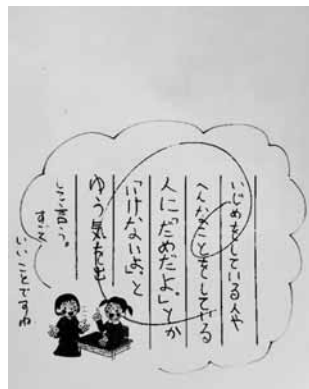 いじめをしている人や
へんなことをしている
人に「だめだよ。」とか
「いけないよ。」と
ゆう気を出
して言う。
すごく
いいことですね